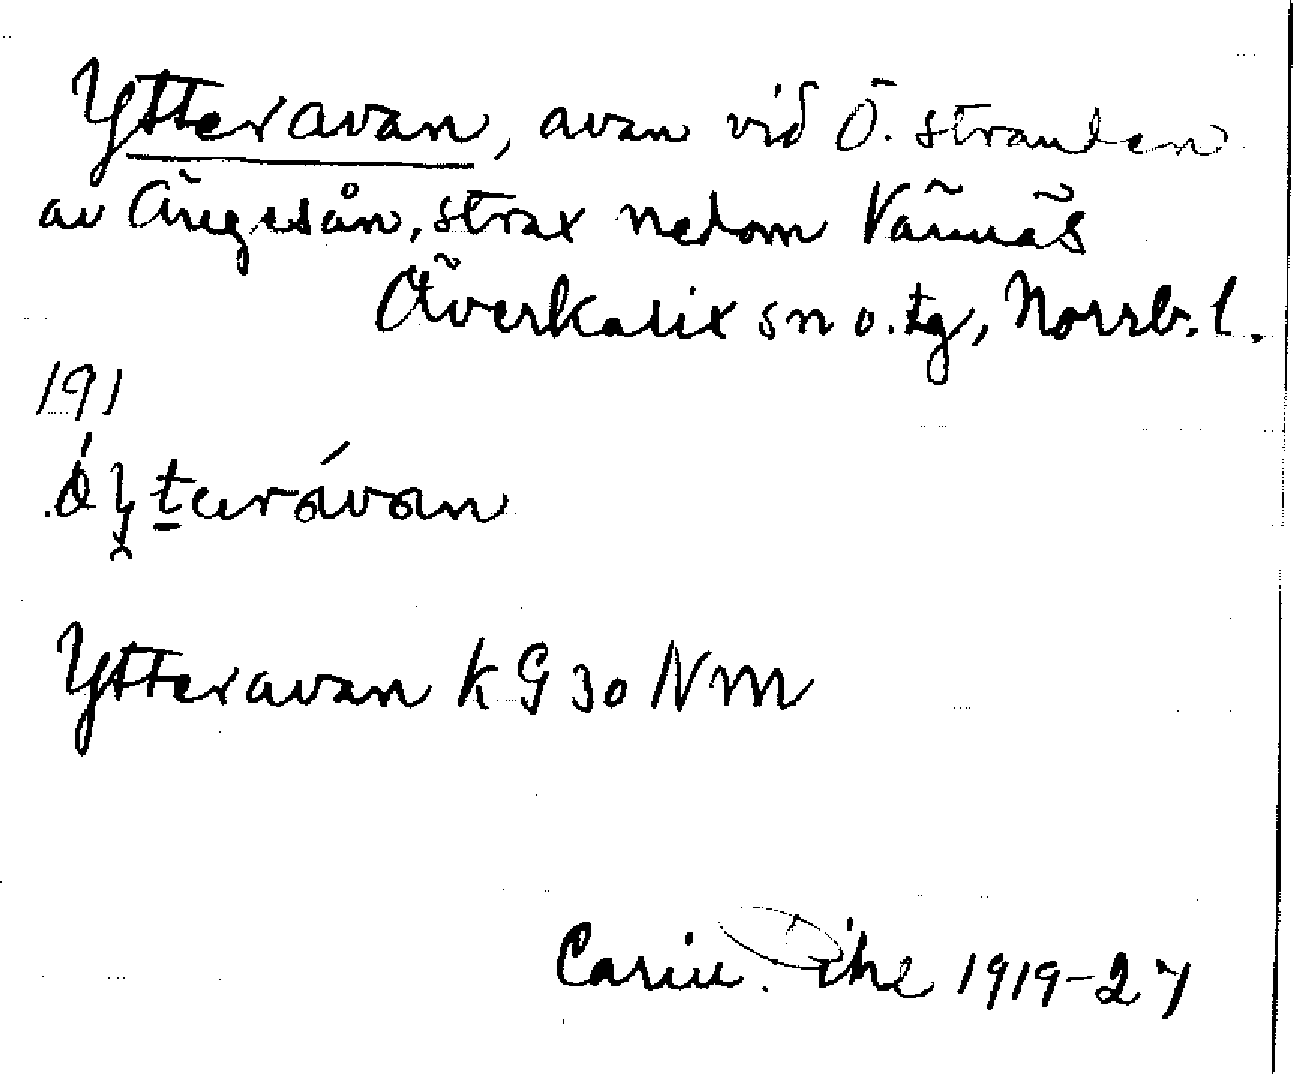 Ytteravan, avan vid Ö. stranden
av Ängesån, strax nedom Vännäs
Överkalix sn o. tg, Norrb. l.
191
Ytteravan K G 30 NM
Carin Pihl 1919-27